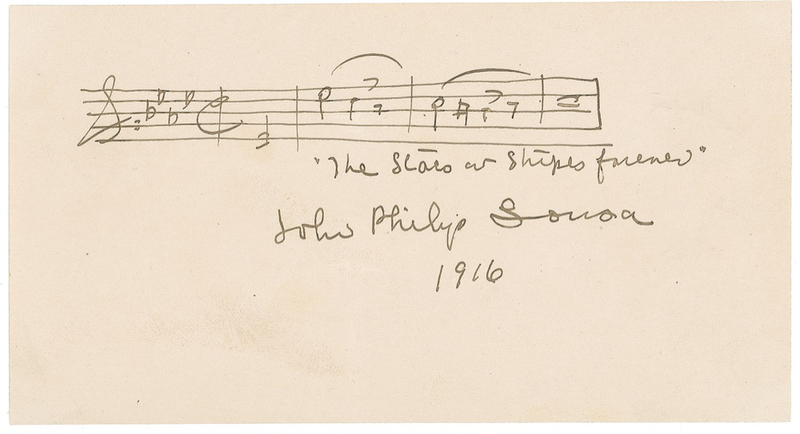 "The Stars and Stripes forever"
John Philip Sousa
1916